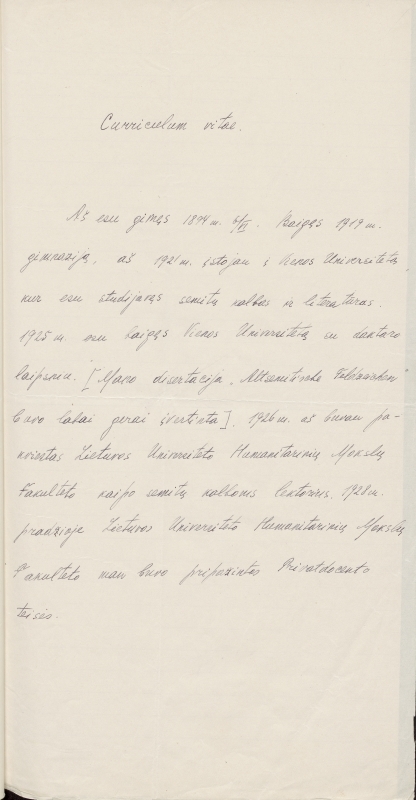 Curriculum vitae.
Aš esu gimęs 1894 m. 6/VI. Baigęs 1919 m.
gimnaziją, aš 1921 m. įstojau į Vienos Universitetą
kur esu studijavęs semitų kalbas ir literatūras.
1925 m. esu baigęs Vienos Universitetą su daktaro
laipsniu. [Mano disertacija „Altsemitische
buvo labai gerai įvertinta]. 1926 m. aš buvau pa-
kviestas Lietuvos Universiteto Humanitarinių Mokslų
Fakulteto kaipo semitų kalboms lektorius. 1928 m.
pradžioje Lietuvos Universiteto Humanitarinių Mokslų
Fakulteto man buvo pripažintos Privatdocento
teisės.